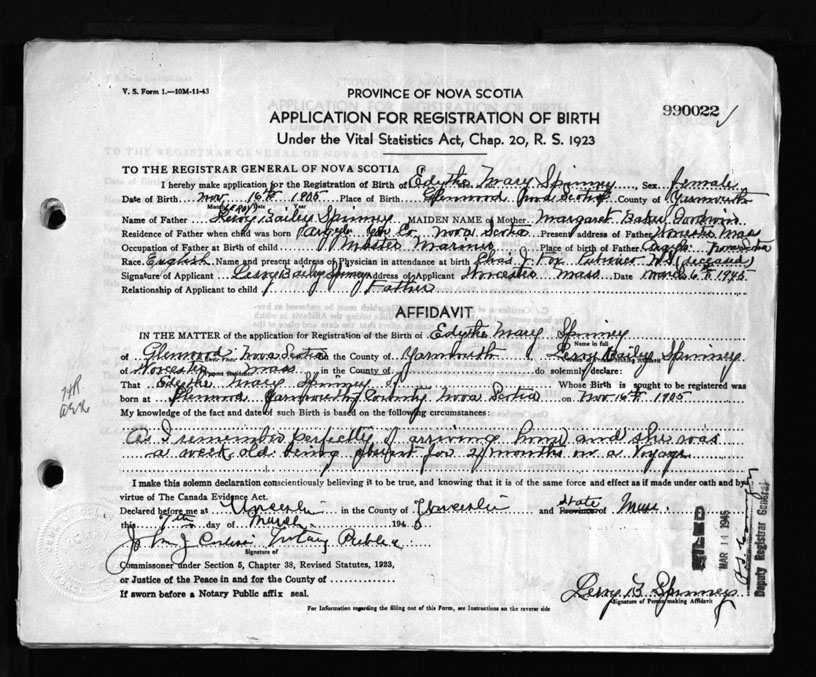 V. S. Form 1.—10M-11-43
PROVINCE OF NOVA SCOTIA
APPLICATION FOR REGISTRATION OF BIRTH
990022
Under the Vital Statistics Act, Chap. 20, R. S. 1923
TO THE REGISTRAR GENERAL OF NOVA SCOTIA
I hereby make application for the Registration of Birth of Edythe Mary Spinney, Sex female
Date of Birth Nov 16th 1905 Place of Birth Glenwood Nova Scotia County of Yarmouth
Month Date Year
Name of Father Leroy Bailey Spinney MAIDEN NAME of Mother Margaret Goodwin
Residence of Father when child was born Argyle Yar Co. Nova Scotia Present address of Father Worcester Mass
Occupation of Father at Birth of child Master Mariner Place of birth of Father Argyle Nova Scotia
Race English Name and present address of Physician in attendance at birth Chas. J. Fox Pubnico N.S (deceased)
Signature of Applicant Leroy Bailey Spinney Address of Applicant Worcester Mass Date March 6th 1945
Relationship of Applicant to child Father
AFFIDAVIT
IN THE MATTER of the application for Registration of the Birth of Edythe Mary Spinney
Name in full
of Glenwood Nova Scotia in the County of Yarmouth Leroy Bailey Spinney
of Worcester Mass in the County of do solemnly declare:
That Edythe Mary Spinney Whose Birth is sought to be registered was
born at Glenwood Yarmouth County Nova Scotia on Nov 16th 1905
My knowledge of the fact and date of such Birth is based on the following circumstances:
As I remember perfectly of arriving home and she was
a week old being absent for 21 months on a Voyage
I make this solemn declaration conscientiously believing it to be true, and knowing that it is of the same force and effect as if made under oath and by
virtue of The Canada Evidence Act.
Declared before me at Worcester in the County of Worcester and State Province of Mass.
this 7th day of March 1945
John J. Notary Public
Signature of
Commissoner under Section 5, Chapter 38, Revised Statutes, 1923,
or Justice of the Peace in and for the County of
If sworn before a Notary Public affix seal.
Leroy B. Spinney
Signature of Person making Affidavit
For Information regarding the filling out of this Form, see Instructions on the reverse side
FILED
MAR 14 1945
Deputy Registrar General